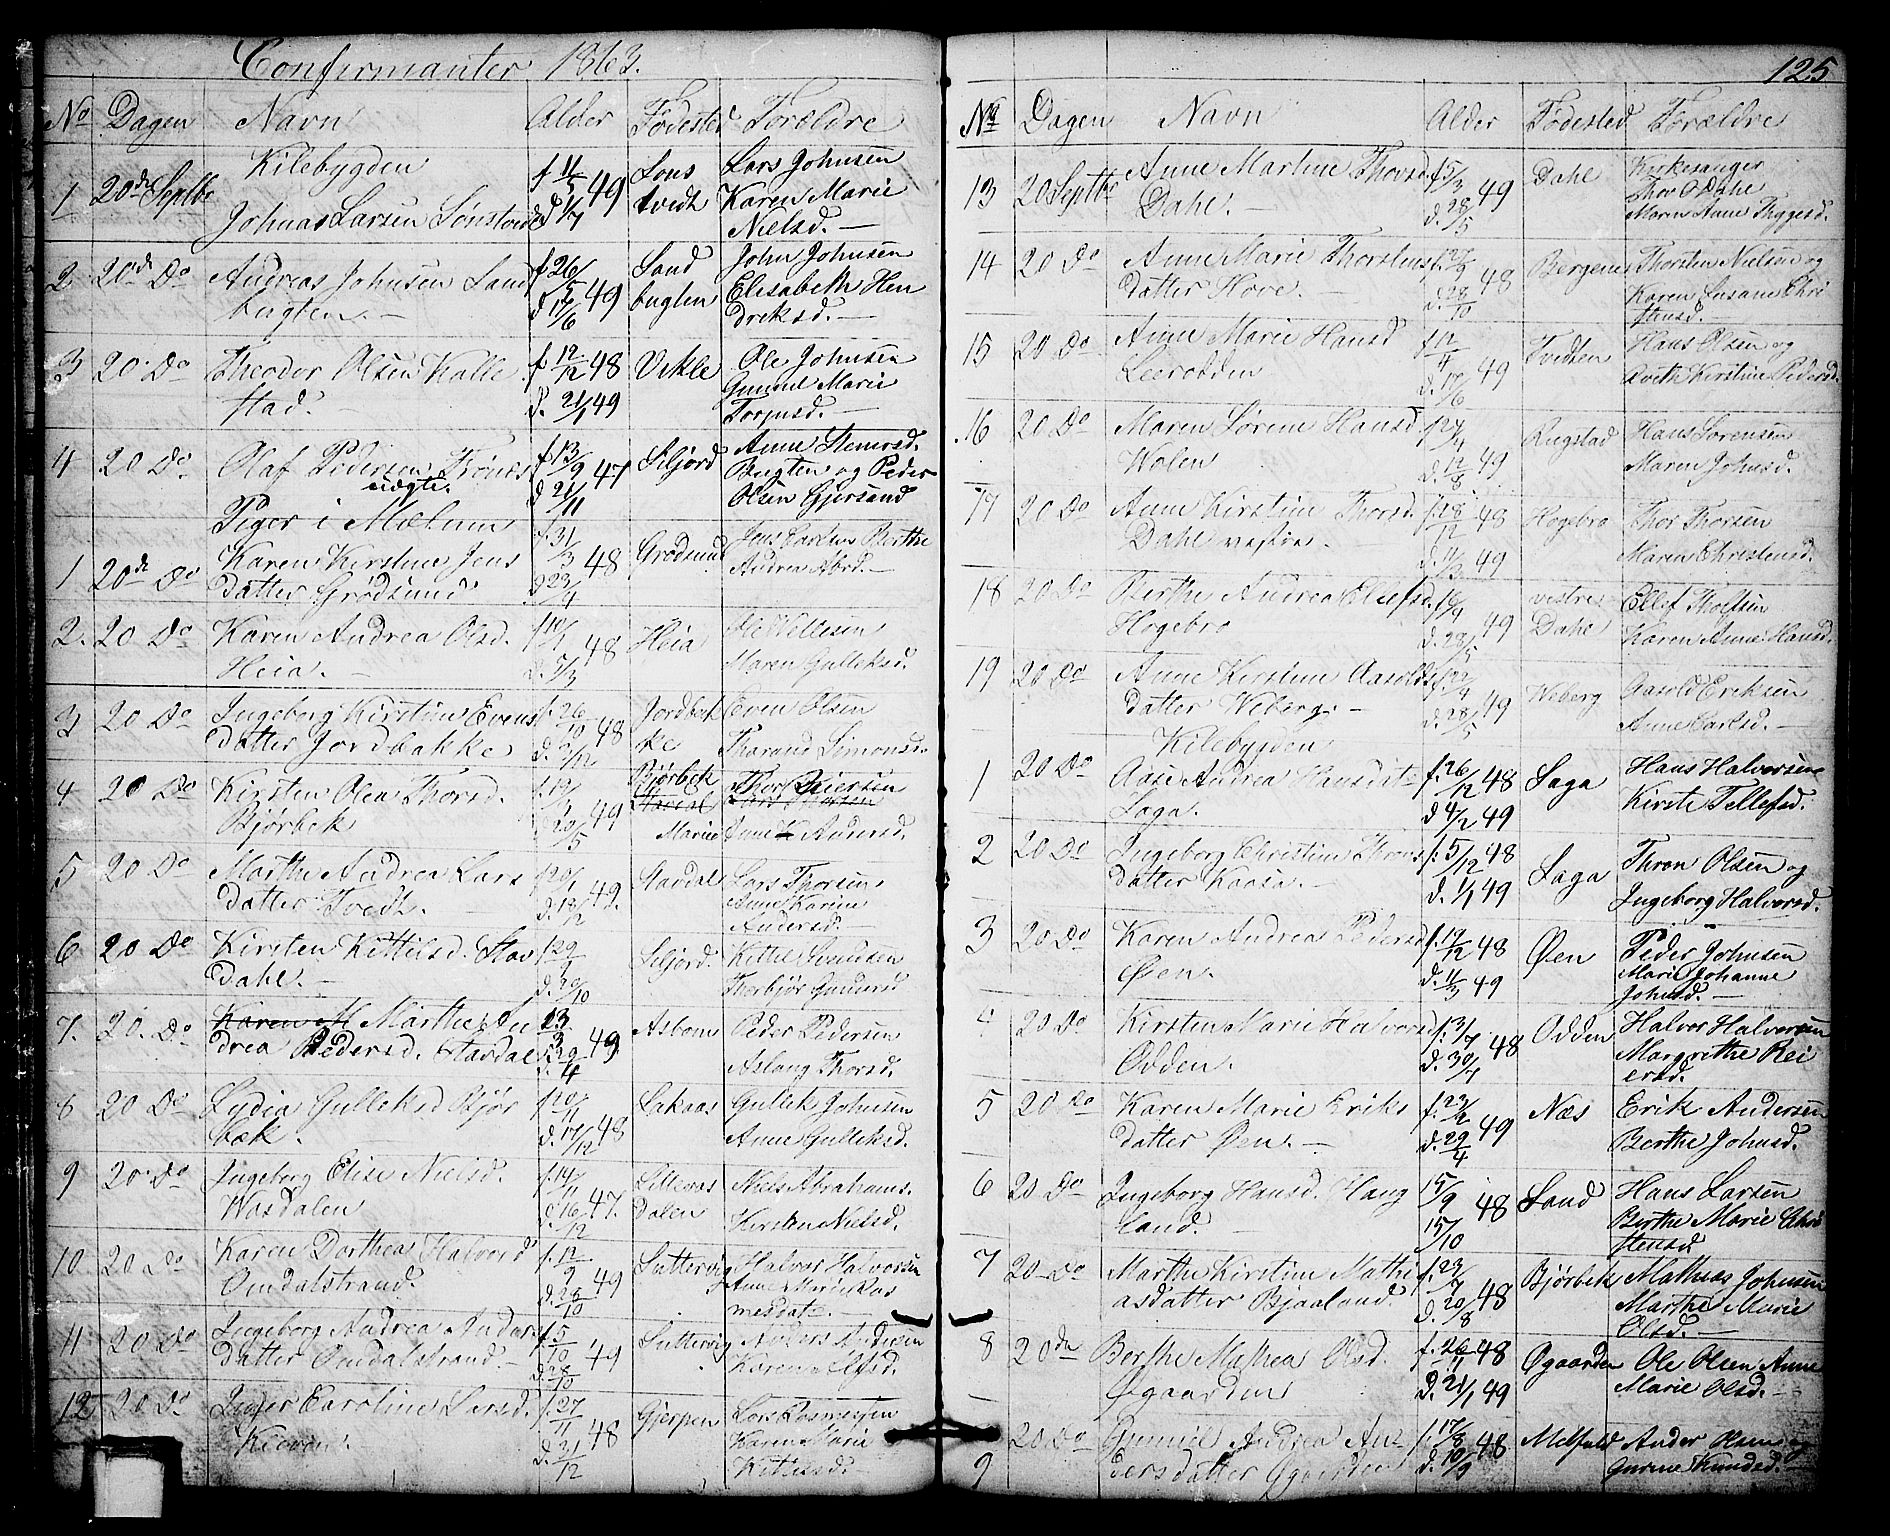 Confirmanter 1863.
No Dagen Navn Alder Fødested Forældre
Kilebygden
1 20de Septbr Johnas Larsen Sønstvedt f 11/5 49 d 1/7 Søns tvedt Lars Johnsen
Karen Marie
Nielsd. —
2 20de Do Andreas Johnsen Sand f. 26/5 49 d 17/6 Sand John Johnsen
bugten. — bugten Elisabeth Hen
dreksd. —
3 20 Do Theodor Olsen Kalle f. 12/12 48 Vekle Ole Johnsen
stad. — d. 21/1 49 Gunnil Marie
Torjusd. —
4 20 Do Olaf Pedersen f. 13/9 47 Siljord Anne
uægte. d 21/11 Bugten og Peder
Olsen Gjersund
Piger i Mælum
1 20de Do Karen Kirstine Jens f. 31/3 48 Grødsund Jens Carlsen Berthe
datter Grødsund d 23/4 Andrea
2. 20 Do Karen Andrea Olsd. 48 Heia Ole
Heia. — d. 5/3 Maren Gulleksd.
3 20 Do Ingeborg Kirstine Evens f. 26/10 48 Jordbak Even Olsen
datter Jordbakke d. 2/12 ke Tharand Simonsd.
4 20 Do Kirsten Olea Thorsd. f. 19/3 49 Bjørbek Thor Reiersen
Bjørbek d. 20/5 Maren Anne Andersd.
5 20 Do Marthe Andrea Lars f 20/1 49. Stavdal Lars Thorsen
datter Tvedt. d. 18/2 Anne Karine
Andersd. —
6 20 Do Kirsten Kittilsd. Stav f 29/7 Siljord. Kittel Svendsen
dahl. — d. 30/10 Thorbjør Gundersd
7. 20. Do Karen M Marthe An 13/3 49 Asbom Peder Pedersen
drea Pedersd. Stavdal d. 29/4 Aslaug Thorsd.
8 20 Do Lydia Gulleksd Bjør f 20/11 48 Lakaas Gullek Johnsen
bæk. d. 17/12 Anne Gulleksd.
9 20 Do Ingeborg Elise Nielsd. f. 14/11 47. Lillevas Niels Abrahams.
Wasdalen d. 16/12 dalen Kirsten Nielsd.
10. 20 Do Karen Dorthea Halvorsd f. 12/9 49 Suttervig Halvor Halvorsen
Omdalstrand. d. 28/10 Anne Marie Ras
mesdat. —
11 20 Do Ingeborg Andrea Anders f. 5/10 49 Suttervig Anders Andersen
datter Omdalstrand. — d. 28/10 Karen Olsd.
12 20 Do Inger Caroline Larsd. f. 27/11 48 Gjerpen Lars Rasmesen
d. 31/12 Karen Marie
Kittilsd. —
125
No Dagen Navn Alder Fødested Forældre
13 20 Septbr Anne Martine Thorsd. f 5/3 49 Dahl Kirkesanger
Dahl. — d. 28/5 Thor O Dahl
Maren Anne Tyggesd.
14 20 Do Anne Marie Thorstens f. 27/9 48 Bergene Thorsten Nielsen og
datter Hove. — d. 28/10 Karen Susane Chri
stensd.
15 20 Do Anne Marie Hansd f 12/4 49 Tvedten Hans Olsen og
Leerodden d. 17/6 Kirstine Pedersd.
16 20 Do Maren Sørine Hansd. f 27/4 49 Rugstad Hans Sørensen
Wolen d. 12/8 Maren Johnsd.
17 20 Do Anne Kirstine Thorsd. f. 28/12 48 Hogebro Thor Thorsen
Dahl vestre. d. 11/3 49 Maren Christensd.
18 20 Do Berthe Andrea Ellefsd. f. 16/4 49 vestre Ellef
Hogebro d. 28/5 Dahl Karen Anne Hansd.
19 20 Do Anne Kirstine Aasolds 49 Weberg Aasold Eriksen
datter Weberg. — d. 28/5 Anne Carlsd. —
Kilebygden
1 20 Do Aase Andrea Hansdt f. 26/12 48 Saga Hans Halvorsen
Saga. d 4/2 49 Kirsti Tellefsd.
2 20 Do Ingeborg Christine Throns f. 5/12 48 Saga Thron Olsen og
datter Kaasa. — d. 1/1 49 Ingeborg Halvorsd.
3 20 Do Karen Andrea Pedersd f. 19/12 48 Øen Peder Johnsen
Øen. d. 11/3 49 Marie Johanne
Johnsd. —
4 20 Do Kirsten Marie Halvorsd f. 3/7 48 Odden Halvor Halvorsen
Odden. d. 30/7 Margrethe Rei
ersd.
5 20 Do Karen Marie Eriks f. 23/2 49 Næs Erik Andersen
datter Øen. — d. 29/4 Berthe Johnsd.
6 20 Do Ingeborg Hansd. Haug 15/9 48 Sand Hans Larsen
land. — 15/10 Berthe Marie Chri
stensd.
7 20 Do Marthe Kirstine Mathi f. 23/7 48 Bjørbek Mathias Johnsen
asdatter Bjaaland. d. 20/8 Marthe Marie
Olsd. —
8 20de Berthe Mathea Olsd. f. 26/11 48 Øgaarden Ole Olsen Anne
Øgaarden d. 21/1 49 Marie Olsd. —
9 20 Do Gunnil Andrea An f. 17/8 48 Melfald Ander Hans og
dersdatter Øgaarden d. 10/9 Gurine Knudsd. —